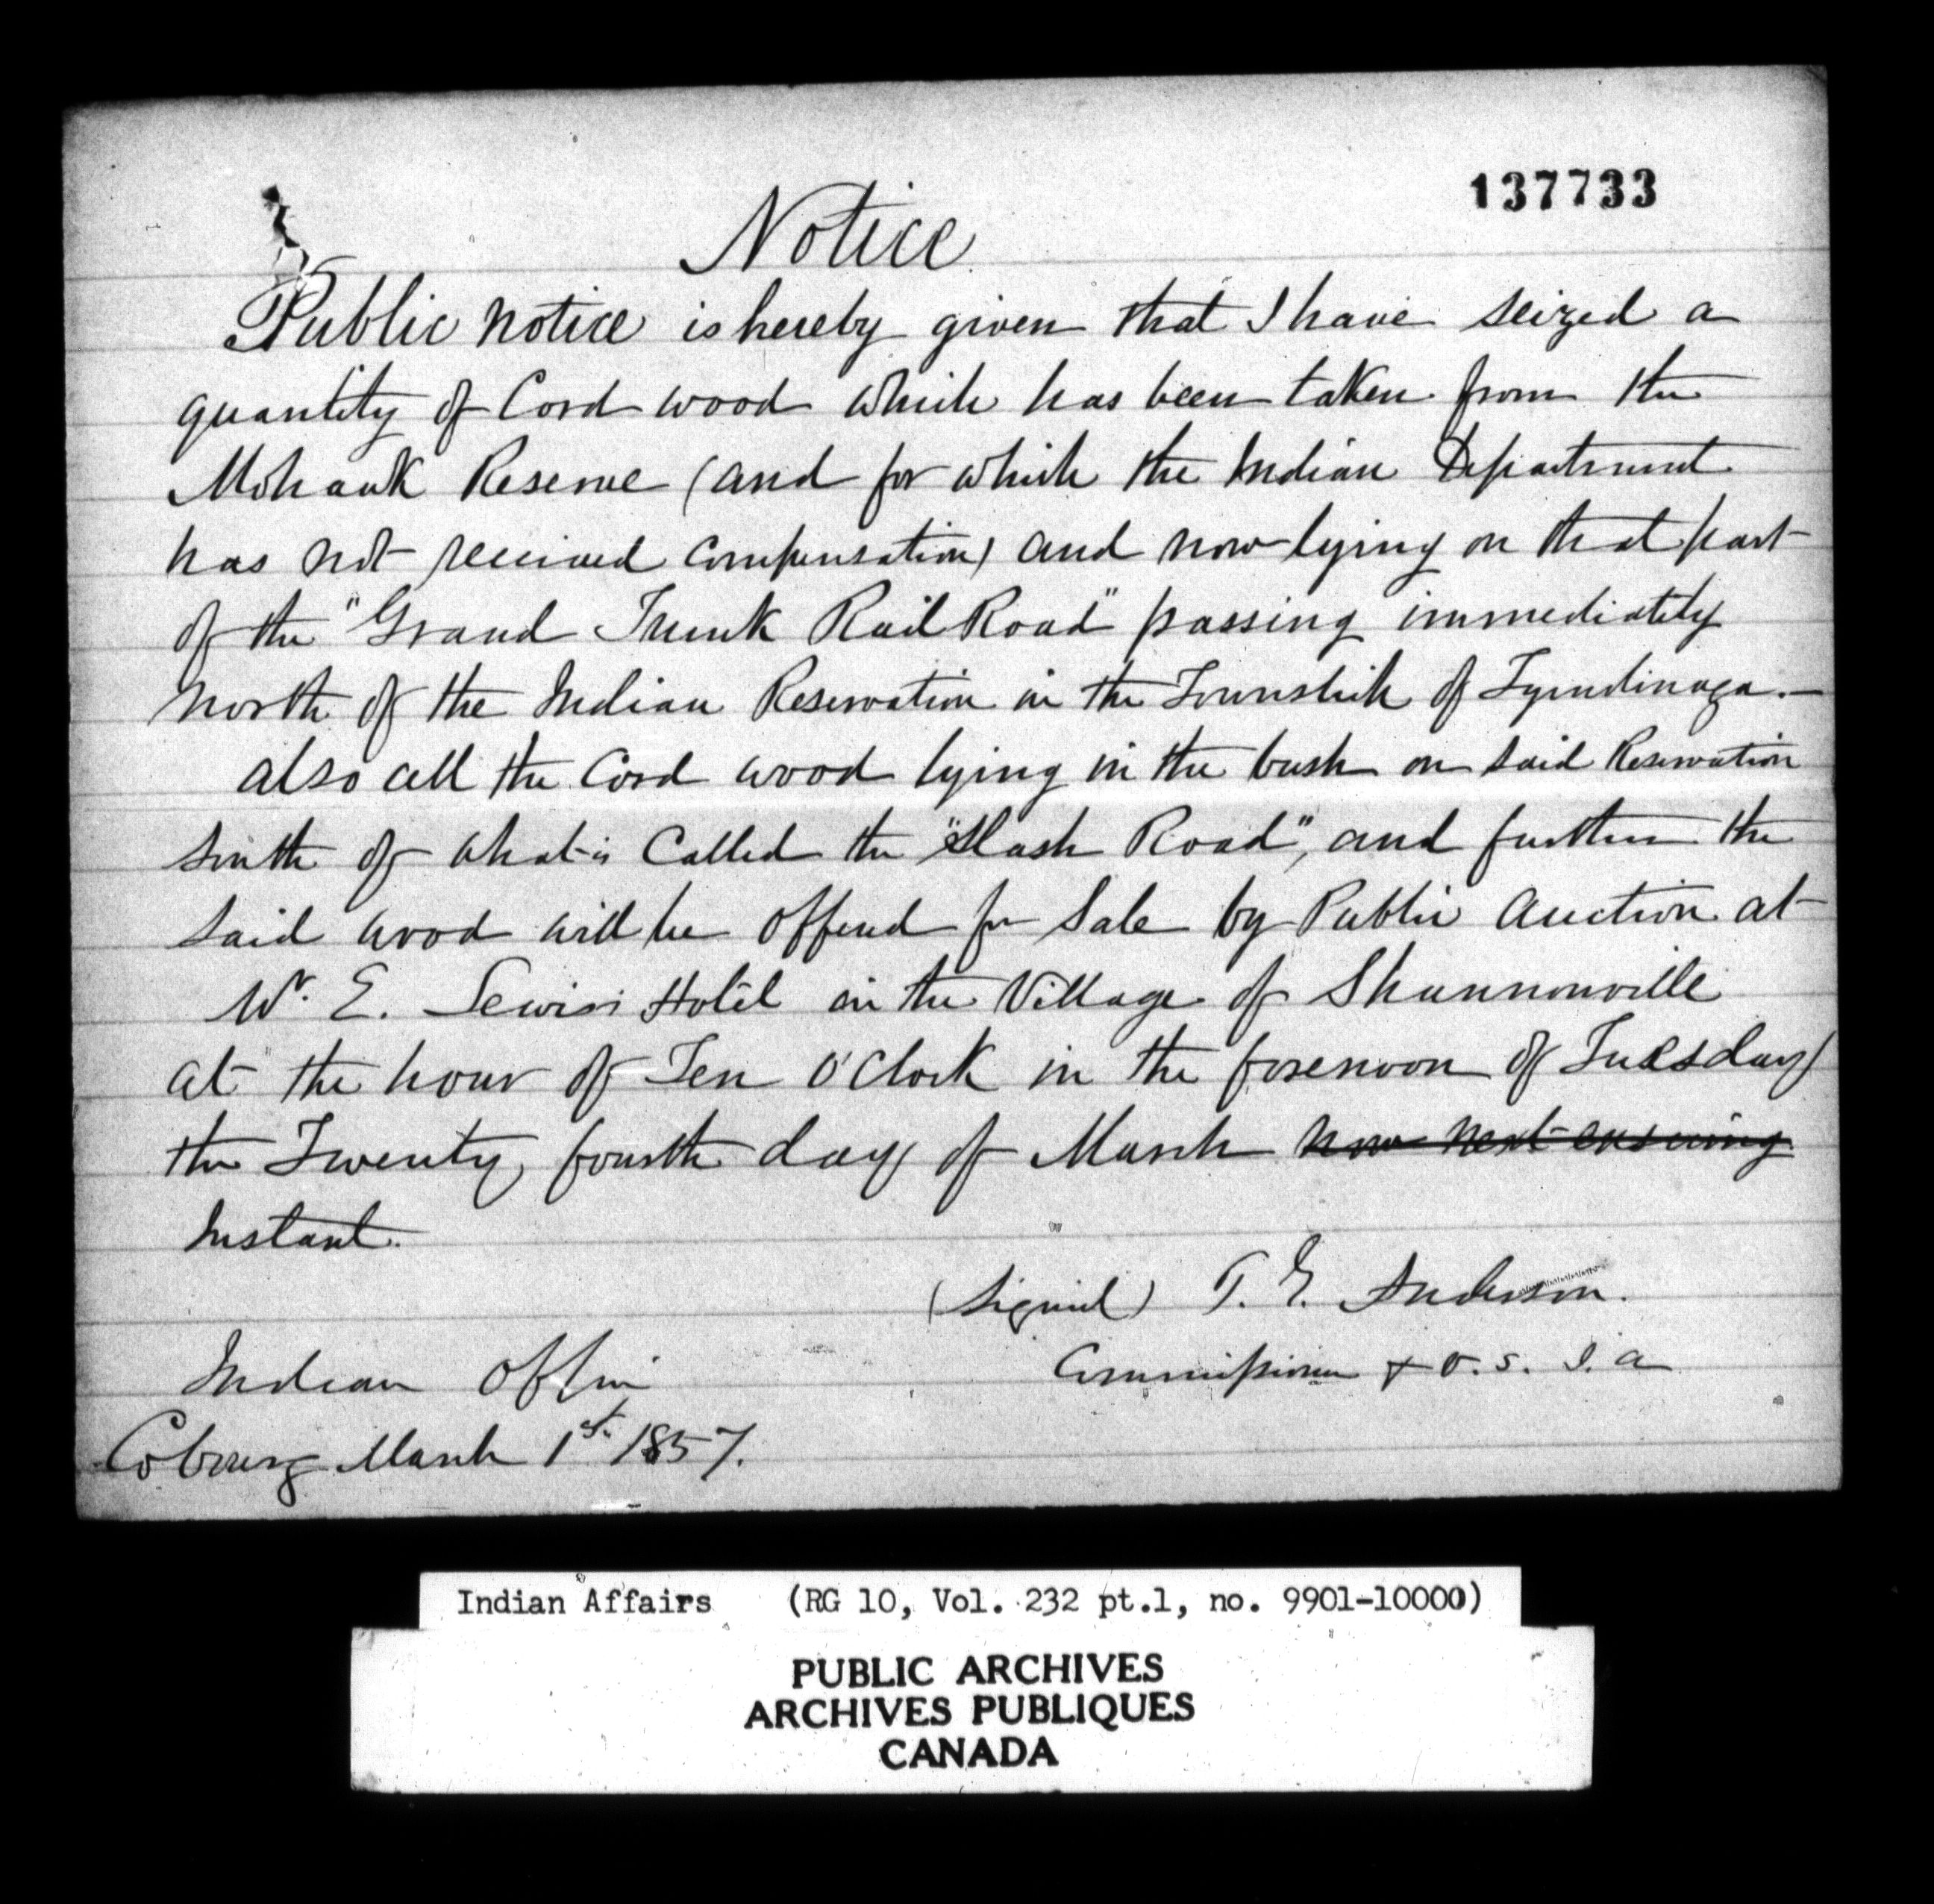 137733
Notice
Public notice is hereby given that I have seized a
quantity of Cord wood which has been taken from the
Mohawk Reserve (and for which the Indian Department
has not received compensation) and now lying on that part
of the "Grand Trunk Rail Road" passing immediately
North of the Indian Reservation in the Township of Tyendinaga.—
also all the Cord wood lying in the bush on said Reservation
South of what is Called the "Slash Road", and further the
said wood will be offered for Sale by Public Auction at
W. E. Lewis's Hotel in the Village of Shannonville
at the hour of Ten O'Clock in the forenoon of Tuesday
the Twenty fourth day of March now next ensuing
Instant.
(Signed) T. G. Anderson.
Commissioner & V. S. I. A
Indian Office
Cobourg March 1st. 1857.
Indian Affairs (RG 10, Vol. 232 pt.1, no. 9901-10000)
PUBLIC ARCHIVES
ARCHIVES PUBLIQUES
CANADA